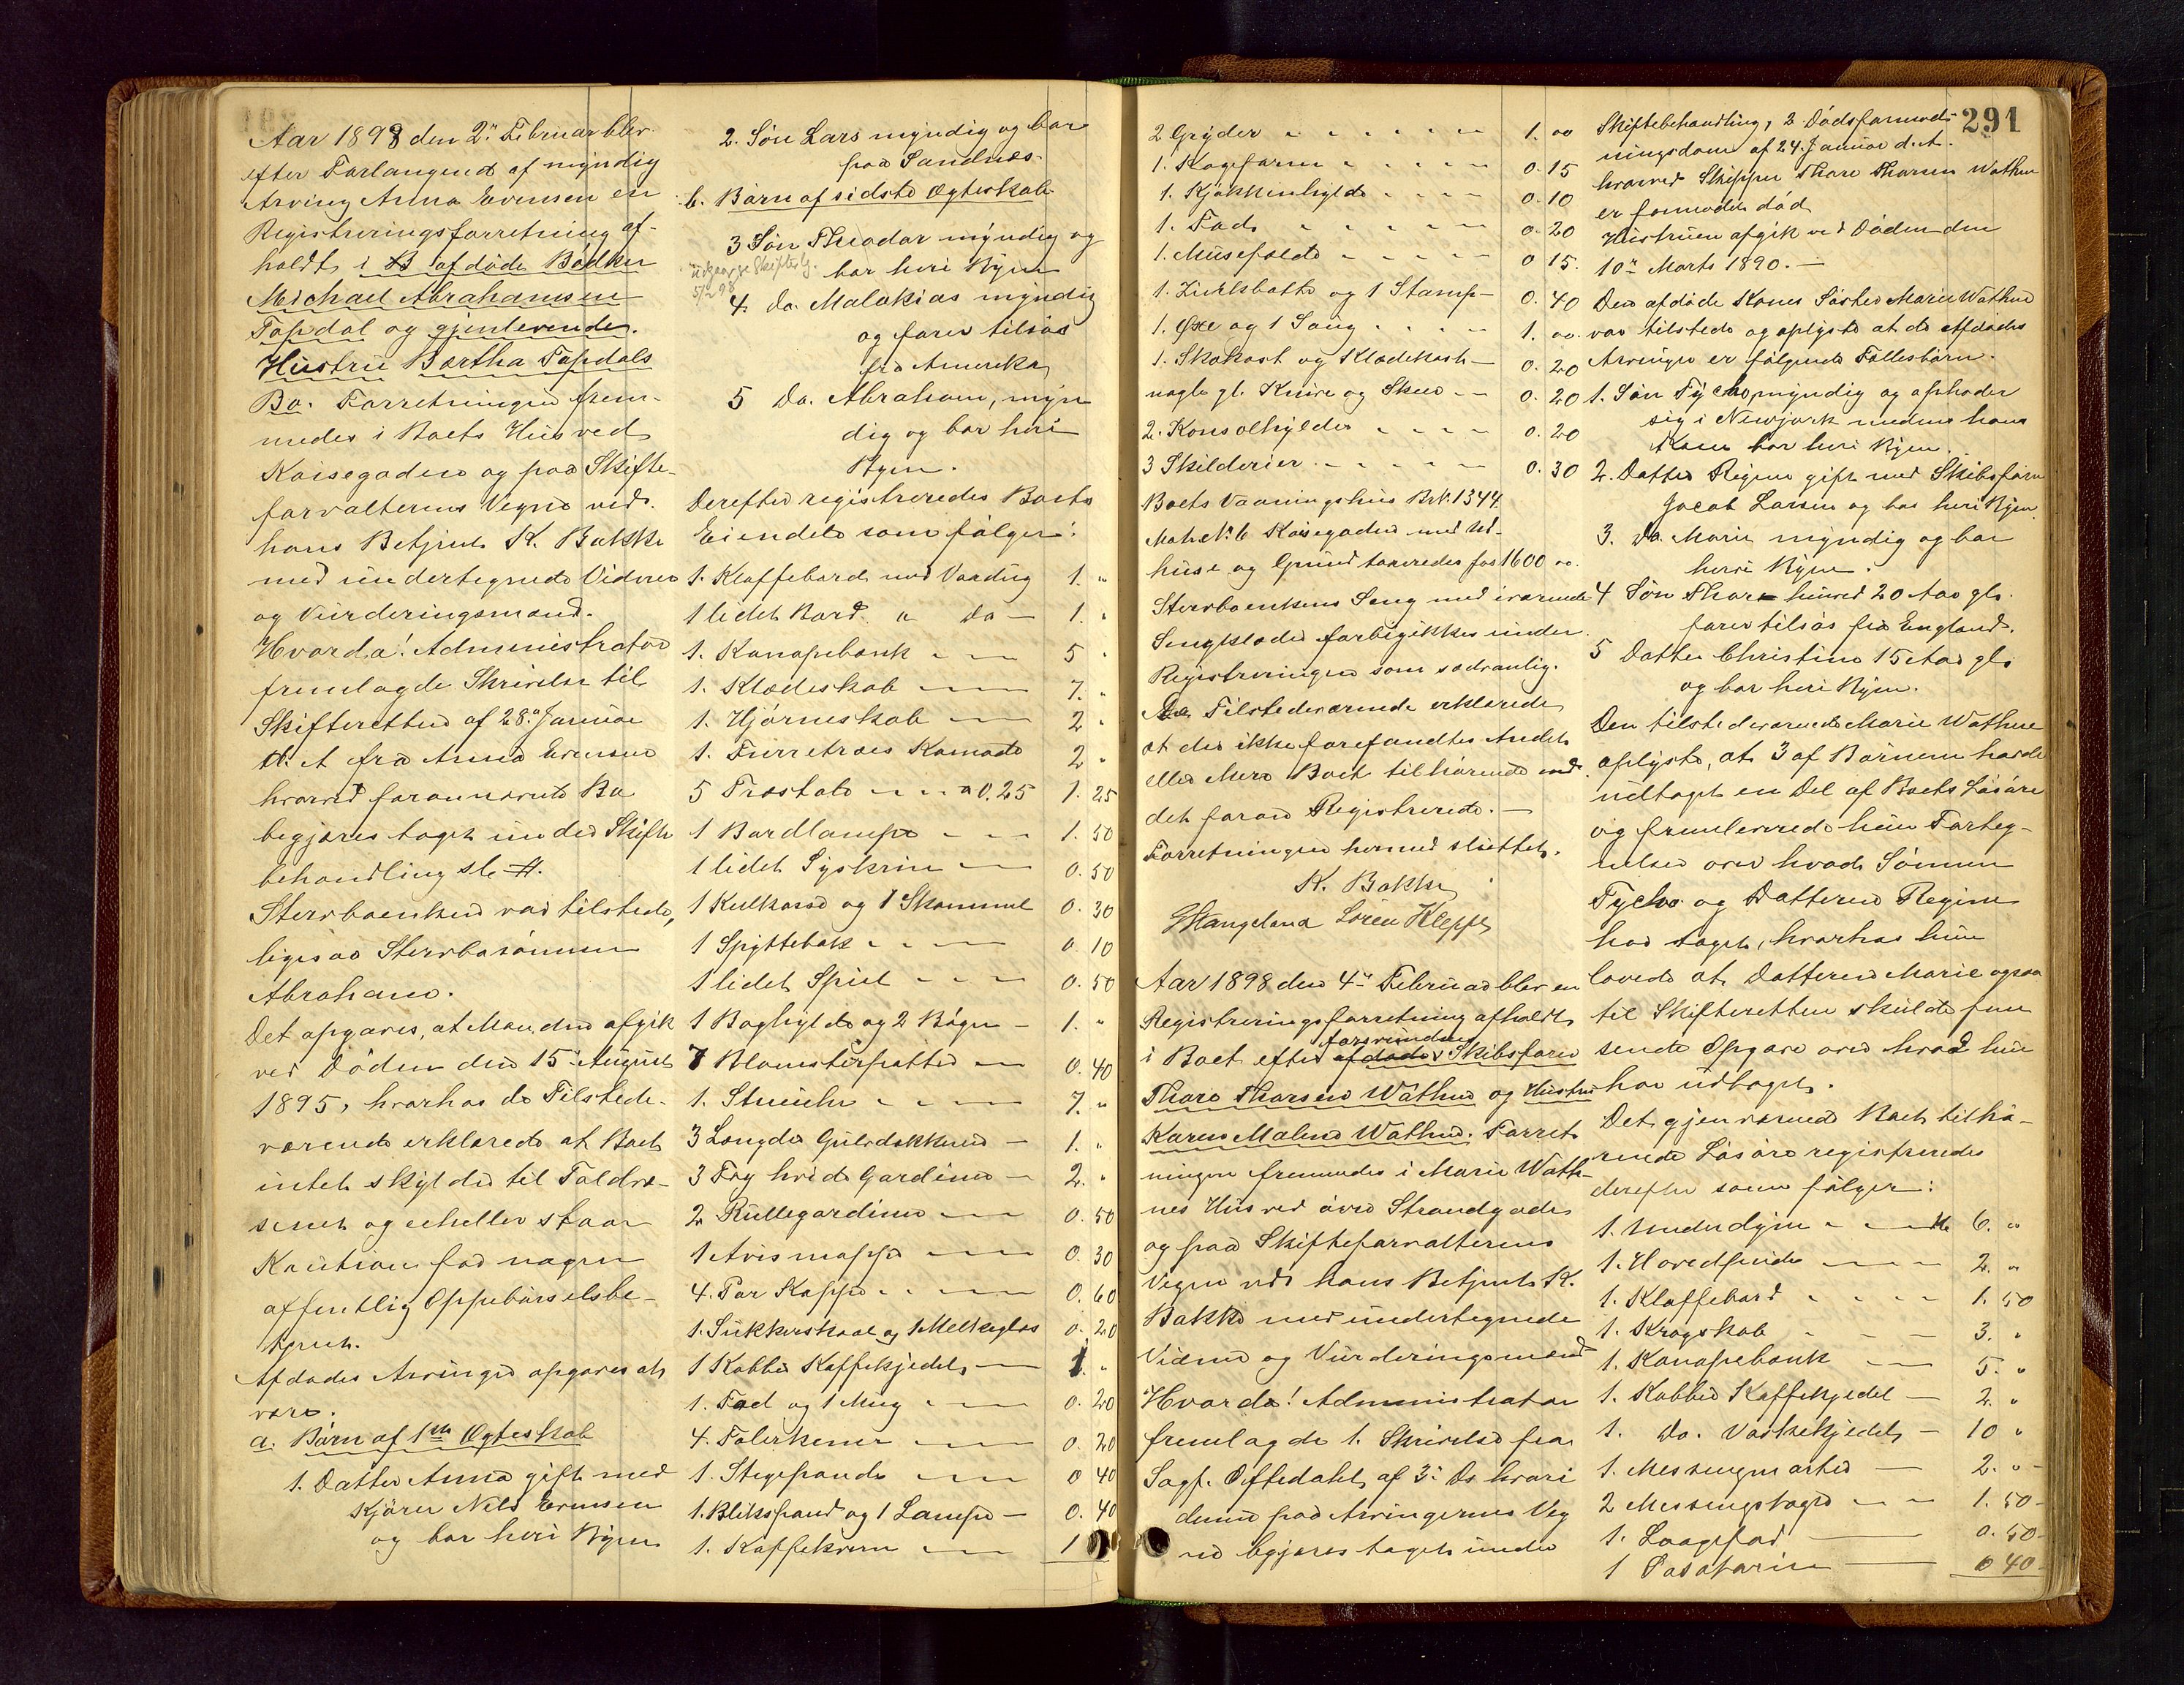 Aar 1898 den 2n Februar blev
efter Forlangend af myndig
Arving Anna Evensen en
Registreringsforretning af-
holdt i B afdøde Bødker
Michael Abrahamsen
Topdal og gjenlevende
Hustru Bertha Topdals
Bo. Forretningen frem-
medes i Boets Hus ved
Kaisegaden og paa Skifte-
forvalterens Vegne ved
hans Betjent K. Bakke
med undertegnede Vidner
og Vurderingsmænd.
Hvorda! Administrator
fremlagde Skrivelse til
Skifteretten af 28n Januar
d. A fra Anna Evensen
hvorved forannævnte Bo
begjæres taget under Skifte
behandling sl. A.
Stervboenken var tilstede,
ligesaa Stervbosønnen
Abraham.
Det opgaves, at Manden afgik
ved Døden den 15n August
1895, hvorhos de Tilstede-
værende erklærede at Boet
intet skylder til Toldvæ-
senet og ei heller staar
Kaution for nogen
offentlig Oppebørselsbe-
tjent.
Afdødes Arvinger opgaves at
være.
a. Børn af 1ste Ægteskab
1. Datter Anna gift med
Kjører Nils Evensen
og bor heri Byen
2. Søn Lars myndig og bor
paa Sandnæs.
b. Børn af sidste Ægteskab
3 Søn Theodor myndig og
bor heri Byen
udgaar se Skiftesg.
5/2 98
4. Do. Malakias myndig
og farer tilsøs
fra Amerika
5 Do. Abraham, myn
dig og bor heri
Byen.
Derefter registreredes Boets
Eiendele som følger:
1. Klaffebord med Voxdug 1. "
1 lidet Bord " Do - 1. "
1. Kanapebænk 5 "
1. Klædeskab 7. "
1. Hjørneskab 2 "
1. Furretræes Komode 2 "
5 Træstole a 0.25 1. 25
1 Bordlampe 1. 50
1 lidet Syskrin 0. 50
1 Kulkasse og 1 Skammel 0. 30
1 Spyttebak 0. 10
1 lidet Speil 0. 50
1 Boghylde og 2 Bøger - 1. "
7 Blomsterpotter 0. 40
1. Stueuhr 7. "
3 Længder Gulvdækkener - 1. "
3 Fag hvide Gardiner - 2. "
2 Rullegardiner 0. 50
1 Avismappe 0. 30
4. Par Kopper 0. 60
1. Sukkerskaal og 1 Melkeglas 0. 20
1 Kobber Kaffekjedel 1. "
1. Fad og 1 Mug 0. 20
4. Tallerkener 0. 20
1. Stegepande 0 40
1. Blikspand og 1 Lampe - 0. 40
1. Kaffekværn 1
291
2 Gryder 1. 00
1. Kageform 0. 15
1. Kjøkkenhylde 0. 10
1. Fad 0. 20
1. Musefælde 0 15.
1. Zinkbøtte og 1 Stamp - 0. 40
1. Øxe og 1 Saug 1. 00.
1. Skokost og Klædekost - 0. 20
nogle gl. Knive og Skeer 0. 20
2. Konsolhylder 0. 20
3 Skilderier 0. 30
Boets Vaaningshus Br.N. 1344.
Matr. No. 6 Kaisegaden med Ud-
huse og Grund taxeredes for 1600 00.
Stervboenkens Seng med iværende
Sengklæder forbigikkes under
Registreringen som sædvanlig.
De Tilstedeværende erklærede
at der ikke forefandtes Andet
eller Mere Boet tilhørende end
det foran Registrerede. —
Forretningen hermed sluttet.
K. Bakke
G Hangeland Søren Kleppe
Aar 1898 den 4n Februar blev en
Registreringsforretning afholdt
i Boet efter afdøde forsvundne Skibsfører
Thore Thorsen Wathne og Hustru
Karen Malene Wathne. Forret-
ningen fremmedes i Marie Wath-
nes Hus ved øvre Strandgade
og paa Skifteforvalterens
Vegne ved hans Betjent K.
Bakke med undertegnede
Vidner og Vurderingsmænd
Hvorda! Administrator
fremlagde 1. Skrivelse fra
Sagf. Oftedahl af 3n Ds hvori
denne paa Arvingernes Veg
ne begjæres taget under
Skiftebehandling, 2 Dødsformod-
ningsdom af 24. Januar d. A.
hvorved Skipper Thore Thorsen Wathne
er formodet død
Hustruen afgik ved Døden den
10n Marts 1890. —
Den afdøde Kones Søster Marie Wathne
var tilstede og oplyste at de Afdødes
Arvinger er følgende Fællesbørn.
1. Søn Tycho, myndig og opholder
sig i Newjork medens hans
Kone bor heri Byen
2. Datter Regine gift med Skibsfører
Jacob Larsen og bor heri Byen.
3. Do. Marie myndig og bor
heri Byen.
4 Søn Thore henved 20 Aar gl.
farer tilsøs fra England.
5 Datter Christine 15 Aar gl.
og bor heri Byen.
Den tilstedeværende Marie Wathne
oplyste, at 3 af Børnene havde
udtaget en Del af Boets Løsøre
og fremleverede hun Forteg-
nelse over hvad Sønnen
Tycho og Datteren Regine
har taget, hvorhos hun
lovede at Datteren Marie ogsaa
til Skifteretten skulde frem
sende Opgave over hvad hun
har udtaget.
Det gjenværende Boet tilhø-
rende Løsøre registreredes
derefter som følger:
1. Underdyne Kr 6. "
1. Hovedpude 2. "
1. Klaffebord 1. 50
1. Krogskab 3. "
1. Kanapebænk 5. "
1. Kobber Kaffekjedel - 2. "
1. Do. Vaskekjedel - 10 "
1. Messingmorter 2. "
2 Messingstager 1. 50
1. Laagefad 0. 50
1 0 40